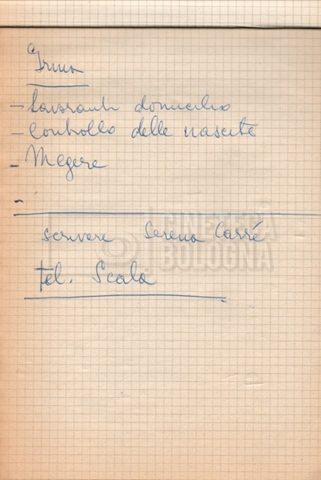 Irma
- lavoranti domicilio
- controllo delle nascite
- Megere
-
scrivere Serena Carré
tel. Scala
CINETECA
BOLOGNA